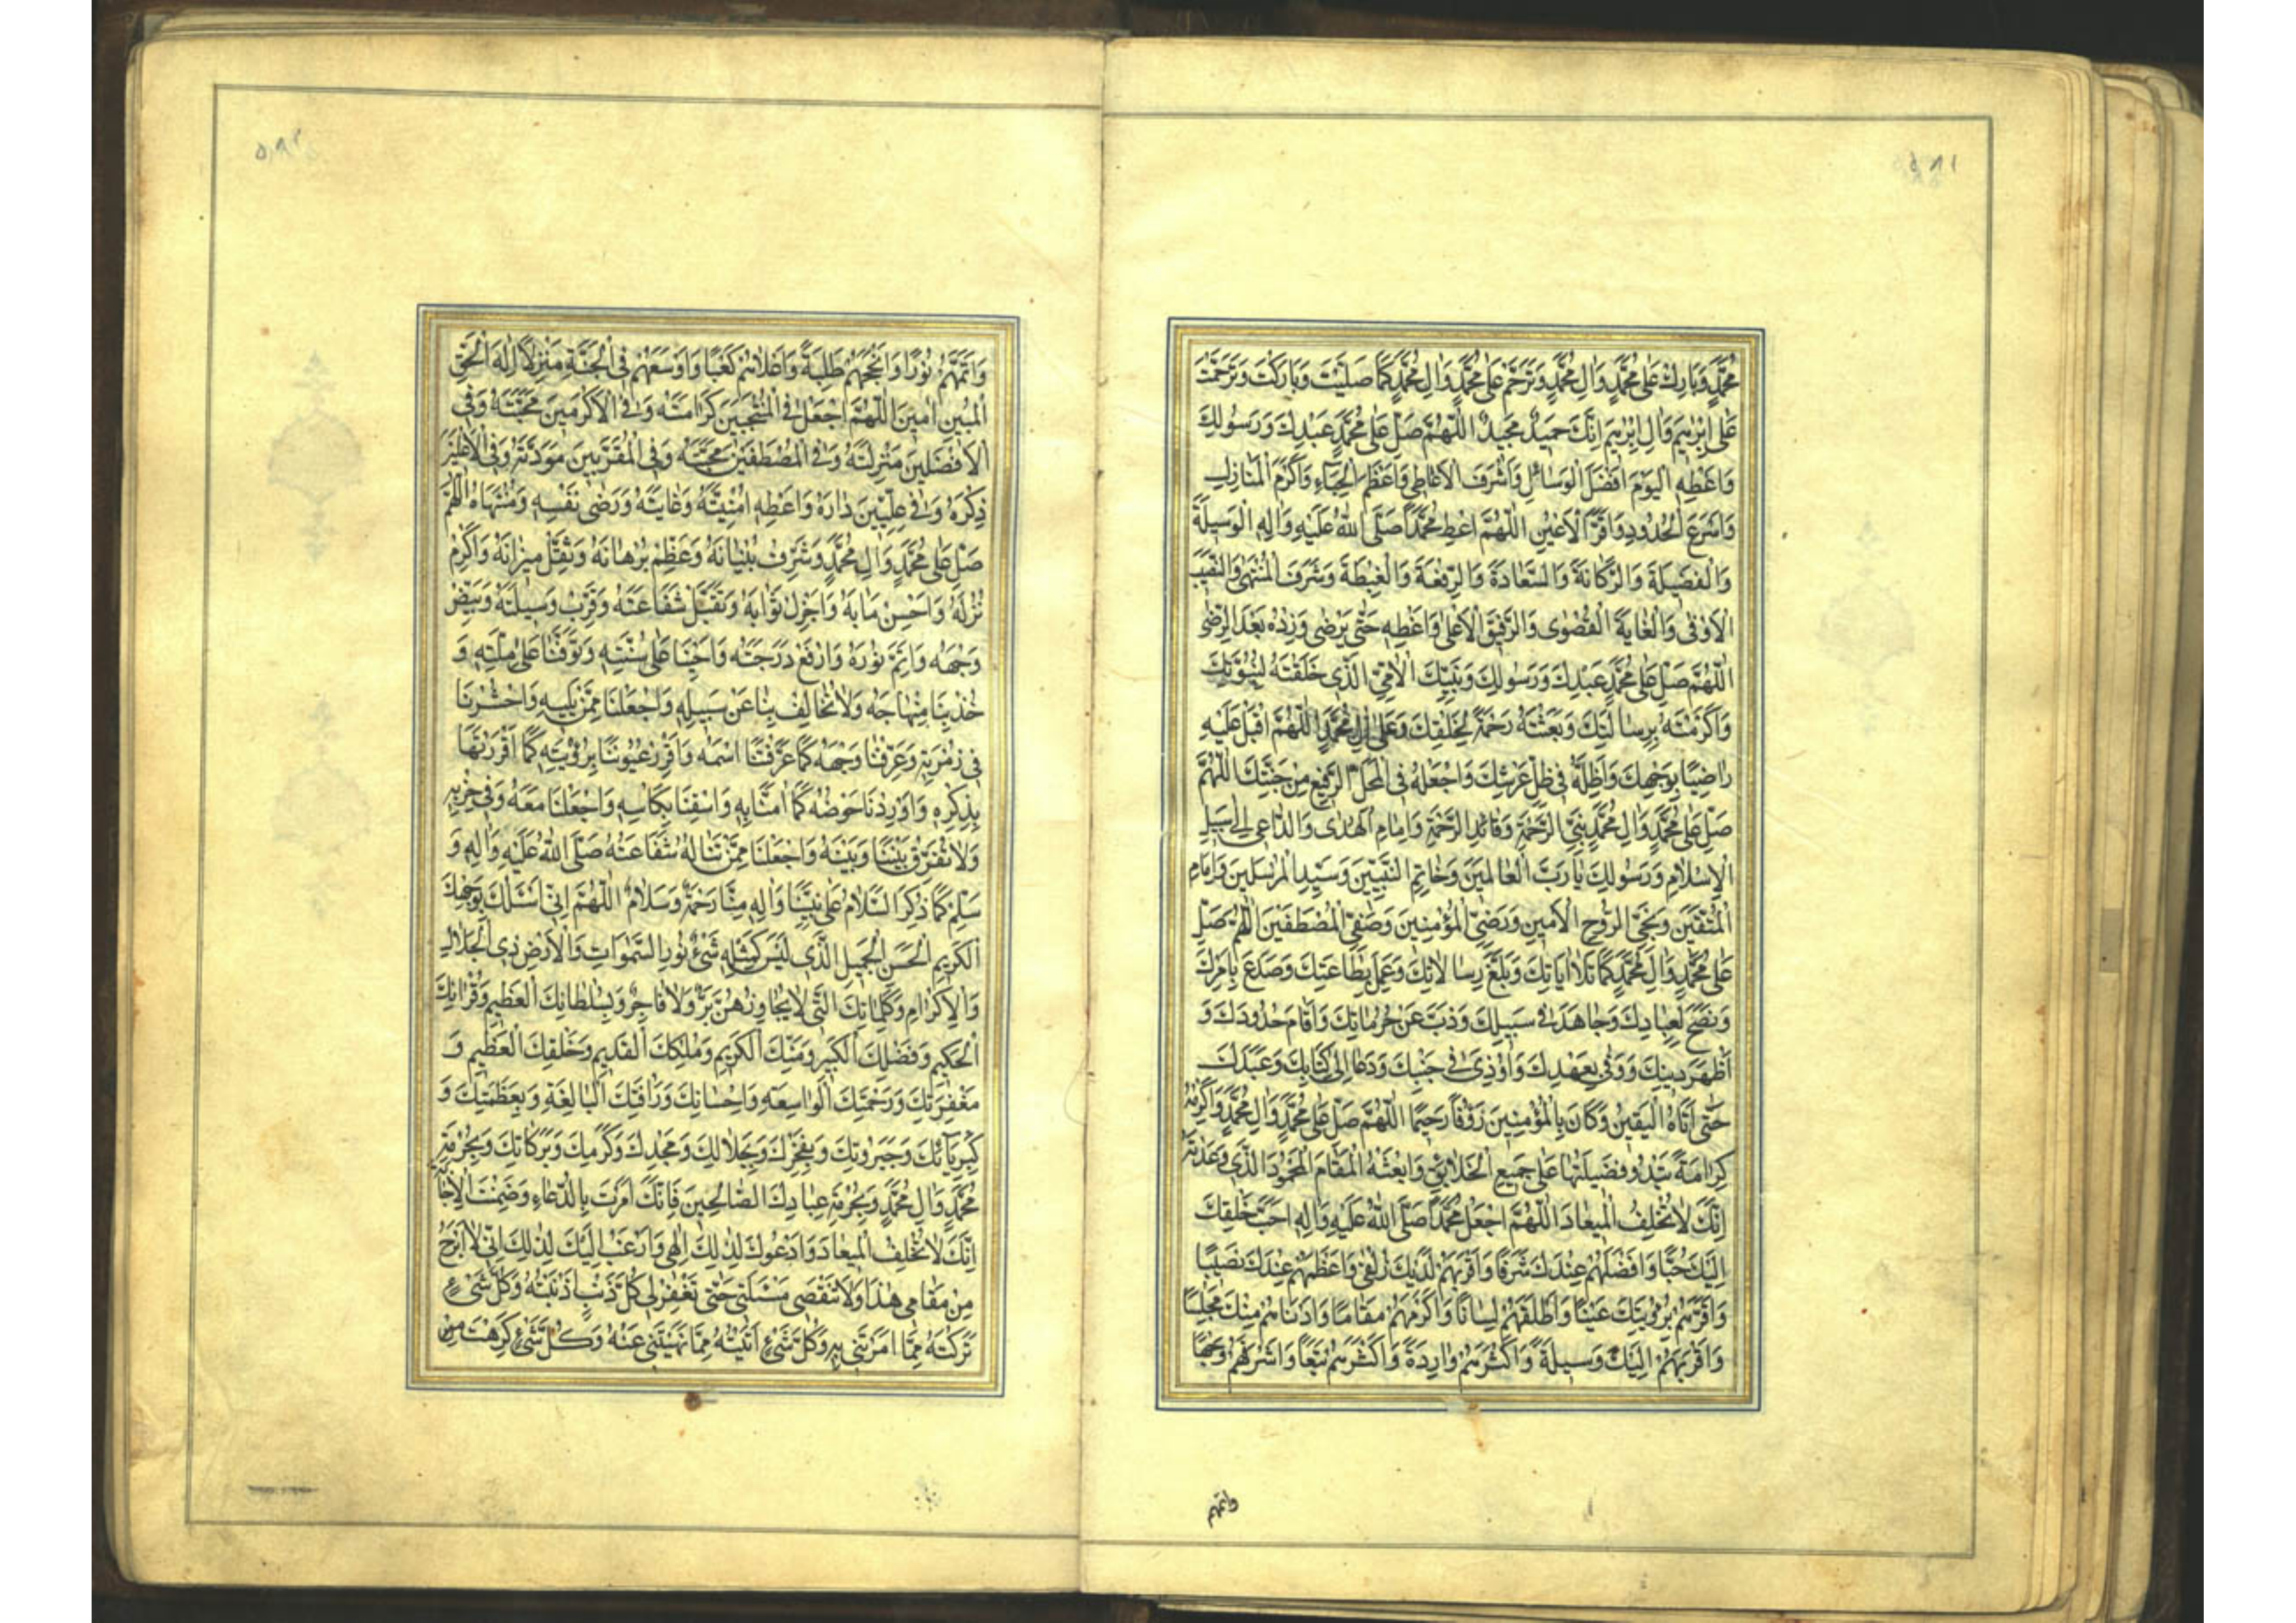 مُحَمَّدٍ وَبَارِكْ عَلَى مُحَمَّدٍ وَآلِ مُحَمَّدٍ وَتَرَحَّمْ عَلَى مُحَمَّدٍ وَآلِ مُحَمَّدٍ كَمَا صَلَّيْتَ وَبَارَكْتَ وَتَرَحَّمْتَ
عَلَى اِبْرٰهِيمَ وَآلِ اِبْرٰهِيمَ اِنَّكَ حَمِيدٌ مَجِيدٌ اَللّٰهُمَّ صَلِّ عَلَى مُحَمَّدٍ عَبْدِكَ وَرَسُولِكَ
وَاَعْطِهِ الْيَوْمَ اَفْضَلَ الْوَسَائِلِ وَاَشْرَفَ الْاَعَاطِي وَاَعْظَمَ الْحِبَاءِ وَاَكْرَمَ الْمَنَازِلِ
وَاَسْرَعَ الْحُدُودِ وَاَقَرَّ الْاَعْيُنِ اَللّٰهُمَّ اَعْطِ مُحَمَّدًا صَلَّى اللّٰهُ عَلَيْهِ وَآلِهِ الْوَسِيلَةَ
وَالْفَضِيلَةَ وَالزَّكَانَةَ وَالسَّعَادَةَ وَالرِّفْعَةَ وَالْغِبْطَةَ وَشَرَفَ الْمُنْتَهٰى وَالنَّصِيبَ
الْاَوْفٰى وَالْغَايَةَ الْقُصْوٰى وَالرَّفِيقَ الْاَعْلٰى وَاَعْطِهِ حَتّٰى يَرْضٰى وَزِدْهُ بَعْدَ الرِّضٰى
اَللّٰهُمَّ صَلِّ عَلَى مُحَمَّدٍ عَبْدِكَ وَرَسُولِكَ وَنَبِيِّكَ الْاُمِّيِّ الَّذِي خَلَقْتَهُ لِنُبُوَّتِكَ
وَاَكْرَمْتَهُ بِرِسَالَتِكَ وَبَعَثْتَهُ رَحْمَةً لِخَلْقِكَ وَعَلٰى آلِ مُحَمَّدٍ اَللّٰهُمَّ اَقْبِلْ عَلَيْهِ
رَاضِيًا بِوَجْهِكَ وَاَظِلَّهُ فِي ظِلِّ عَرْشِكَ وَاجْعَلْهُ فِي الْمَحَلِّ الرَّفِيعِ مِنْ جَنَّتِكَ اَللّٰهُمَّ
صَلِّ عَلَى مُحَمَّدٍ وَآلِ مُحَمَّدٍ نَبِيِّ الرَّحْمَةِ وَقَائِدِ الرَّحْمَةِ وَاِمَامِ الْهُدٰى وَالدَّاعِي اِلٰى سَبِيلِ
الْاِسْلَامِ وَرَسُولِكَ يَا رَبَّ الْعَالَمِينَ وَخَاتِمِ النَّبِيِّينَ وَسَيِّدِ الْمُرْسَلِينَ وَاِمَامِ
الْمُتَّقِينَ وَنَجِيِّ الرُّوحِ الْاَمِينِ وَرَضِيِّ الْمُؤْمِنِينَ وَصَفِيِّ الْمُصْطَفَيْنَ اَللّٰهُمَّ صَلِّ
عَلَى مُحَمَّدٍ وَآلِ مُحَمَّدٍ كَمَا تَلَا آيَاتِكَ وَبَلَّغَ رِسَالَاتِكَ وَعَمِلَ بِطَاعَتِكَ وَصَدَعَ بِاَمْرِكَ
وَنَصَحَ لِعِبَادِكَ وَجَاهَدَ فِي سَبِيلِكَ وَذَبَّ عَنْ حُرُمَاتِكَ وَاَقَامَ حُدُودَكَ وَ
اَظْهَرَ دِينَكَ وَوَفٰى بِعَهْدِكَ وَاُوذِيَ فِي جَنْبِكَ وَدَعَا اِلٰى كِتَابِكَ وَعَبَدَكَ
حَتّٰى اَتَاهُ الْيَقِينُ وَكَانَ بِالْمُؤْمِنِينَ رَؤُفًا رَحِيمًا اَللّٰهُمَّ صَلِّ عَلَى مُحَمَّدٍ وَآلِ مُحَمَّدٍ وَاَكْرِمْهُ
كَرَامَةً تَبْدُو فَضِيلَتُهَا عَلٰى جَمِيعِ الْخَلَائِقِ وَابْعَثْهُ الْمَقَامَ الْمَحْمُودَ الَّذِي وَعَدْتَهُ
اِنَّكَ لَا تُخْلِفُ الْمِيعَادَ اَللّٰهُمَّ اجْعَلْ مُحَمَّدًا صَلَّى اللّٰهُ عَلَيْهِ وَآلِهِ اَحَبَّ خَلْقِكَ
اِلَيْكَ حُبًّا وَاَفْضَلَهُمْ عِنْدَكَ شَرَفًا وَاَقْرَبَهُمْ لَدَيْكَ زُلْفٰى وَاَعْظَمَهُمْ عِنْدَكَ نَصِيبًا
وَاَقَرَّهُمْ بِرُؤْيَتِكَ عَيْنًا وَاَطْلَقَهُمْ لِسَانًا وَاَكْرَمَهُمْ مَقَامًا وَاَدْنَاهُمْ مِنْكَ مَجْلِسًا
وَاَقْرَبَهُمْ اِلَيْكَ وَسِيلَةً وَاَكْثَرَهُمْ وَارِدَةً وَاَكْثَرَهُمْ تَبَعًا وَاَشْرَقَهُمْ وَجْهًا
واتمهم
وَاَتَمَّهُمْ نُورًا وَاَنْجَحَهُمْ طَلِبَةً وَاَعْلَاهُمْ كَعْبًا وَاَوْسَعَهُمْ فِي الْجَنَّةِ مَنْزِلًا اِلٰهَ الْحَقِّ
الْمُبِينِ آمِينَ اَللّٰهُمَّ اجْعَلْ فِي الْمُنْتَجَبِينَ كَرَامَتَهُ وَفِي الْاَكْرَمِينَ مَحَبَّتَهُ وَفِي
الْاَفْضَلِينَ مَنْزِلَتَهُ وَفِي الْمُصْطَفَيْنَ مَحَبَّتَهُ وَفِي الْمُقَرَّبِينَ مَوَدَّتَهُ وَفِي
ذِكْرَهُ وَفِي عِلِّيِّينَ دَارَهُ وَاَعْطِهِ اُمْنِيَّتَهُ وَغَايَتَهُ وَرِضٰى نَفْسِهِ وَمُنْتَهَاهُ اَللّٰهُمَّ
صَلِّ عَلَى مُحَمَّدٍ وَآلِ مُحَمَّدٍ وَشَرِّفْ بُنْيَانَهُ وَعَظِّمْ بُرْهَانَهُ وَثَقِّلْ مِيزَانَهُ وَاَكْرِمْ
نُزُلَهُ وَاَحْسِنْ مَآبَهُ وَاَجْزِلْ ثَوَابَهُ وَتَقَبَّلْ شَفَاعَتَهُ وَقَرِّبْ وَسِيلَتَهُ وَبَيِّضْ
وَجْهَهُ وَاَتِمَّ نُورَهُ وَارْفَعْ دَرَجَتَهُ وَاَحْيِنَا عَلٰى سُنَّتِهِ وَتَوَفَّنَا عَلٰى مِلَّتِهِ وَ
خُذْ بِنَا مِنْهَاجَهُ وَلَا تُخَالِفْ بِنَا عَنْ سَبِيلِهِ وَاجْعَلْنَا مِمَّنْ يَلِيهِ وَاحْشُرْنَا
فِي زُمْرَتِهِ وَعَرِّفْنَا وَجْهَهُ كَمَا عَرَّفْتَنَا اسْمَهُ وَاَقْرِرْ عُيُونَنَا بِرُؤْيَتِهِ كَمَا اَقْرَرْتَهَا
بِذِكْرِهِ وَاَوْرِدْنَا حَوْضَهُ كَمَا آمَنَّا بِهِ وَاسْقِنَا بِكَاْسِهِ وَاجْعَلْنَا مَعَهُ وَفِي حِزْبِهِ
وَلَا تُفَرِّقْ بَيْنَنَا وَبَيْنَهُ وَاجْعَلْنَا مِمَّنْ تَنَالُهُ شَفَاعَتُهُ صَلَّى اللّٰهُ عَلَيْهِ وَآلِهِ وَ
سَلِّمْ كَمَا ذُكِرَ السَّلَامُ عَلٰى نَبِيِّنَا وَآلِهِ مِنَّا رَحْمَةٌ وَسَلَامٌ اَللّٰهُمَّ اِنِّي اَسْئَلُكَ بِوَجْهِكَ
الْكَرِيمِ الْحَسَنِ الْجَمِيلِ الَّذِي لَيْسَ كَمِثْلِهِ شَيْءٌ نُورِ السَّمٰوَاتِ وَالْاَرْضِ ذِي الْجَلَالِ
وَالْاِكْرَامِ وَكَلِمَاتِكَ الَّتِي لَا يُجَاوِزُهُنَّ بَرٌّ وَلَا فَاجِرٌ وَبِسُلْطَانِكَ الْعَظِيمِ وَقُرْآنِكَ
الْحَكِيمِ وَفَضْلِكَ الْكَبِيرِ وَمَنِّكَ الْكَرِيمِ وَمُلْكِكَ الْقَدِيمِ وَخَلْقِكَ الْعَظِيمِ وَ
مَغْفِرَتِكَ وَرَحْمَتِكَ الْوَاسِعَةِ وَاِحْسَانِكَ وَرَاْفَتِكَ الْبَالِغَةِ وَبِعَظَمَتِكَ وَ
كِبْرِيَائِكَ وَجَبَرُوتِكَ وَبِفَخْرِكَ وَبِجَلَالِكَ وَمَجْدِكَ وَكَرَمِكَ وَبَرَكَاتِكَ وَبِحُرْمَةِ
مُحَمَّدٍ وَآلِ مُحَمَّدٍ وَبِحُرْمَةِ عِبَادِكَ الصَّالِحِينَ فَاِنَّكَ اَمَرْتَ بِالدُّعَاءِ وَضَمِنْتَ الْاِجَابَةَ
اِنَّكَ لَا تُخْلِفُ الْمِيعَادَ وَاَدْعُوكَ لِذٰلِكَ اِلٰهِي وَاَرْغَبُ اِلَيْكَ لِذٰلِكَ اِنِّي لَا اَبْرَحُ
مِنْ مَقَامِي هٰذَا وَلَا تَنْقَضِي مَسْئَلَتِي حَتّٰى تَغْفِرَ لِي كُلَّ ذَنْبٍ اَذْنَبْتُهُ وَكُلَّ شَيْءٍ
تَرَكْتُهُ مِمَّا اَمَرْتَنِي بِهِ وَكُلَّ شَيْءٍ اَتَيْتُهُ مِمَّا نَهَيْتَنِي عَنْهُ وَكُلَّ شَيْءٍ كَرِهْتَ مِنْ